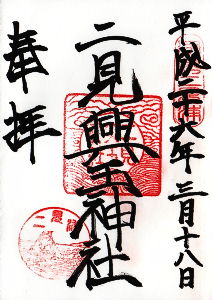 平成二十六年三月十八日
二見興玉神社
奉拝